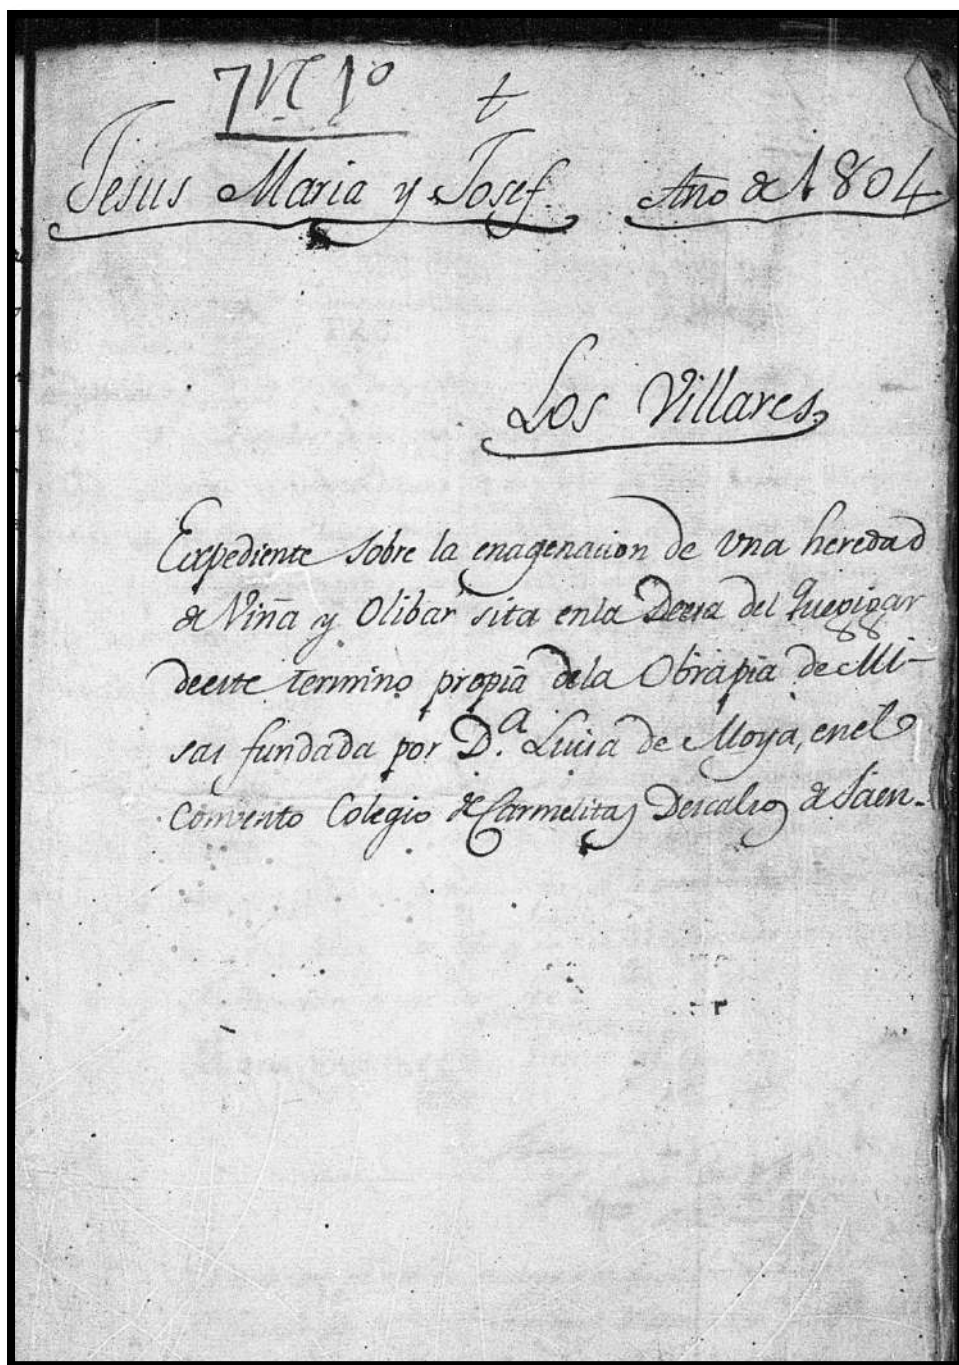 Jesus Maria y Josef. Año de 1804
Los Villares.
Expediente sobre la enagenacion de una heredad
de Viña y Olibar sita enla del
deeste termino propia dela Obrapia de Mi-
sas fundada por D.ª Lucia de Moya, enel
Convento Colegio de Carmelitas Descalzos de Jaen.